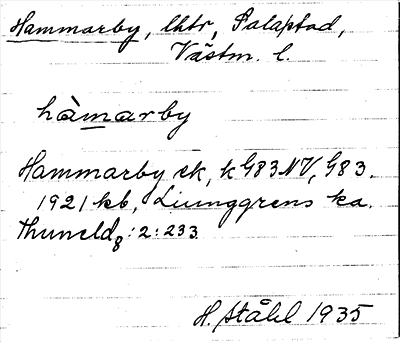 Hammarby, lhtr, Salaptad,
Västm. l.
hàmarby
Hammarby ek, k G83NV, G83.
1921 kb, Ljunggrens ka.
Thuneld8:2:233
H. Ståhl 1935